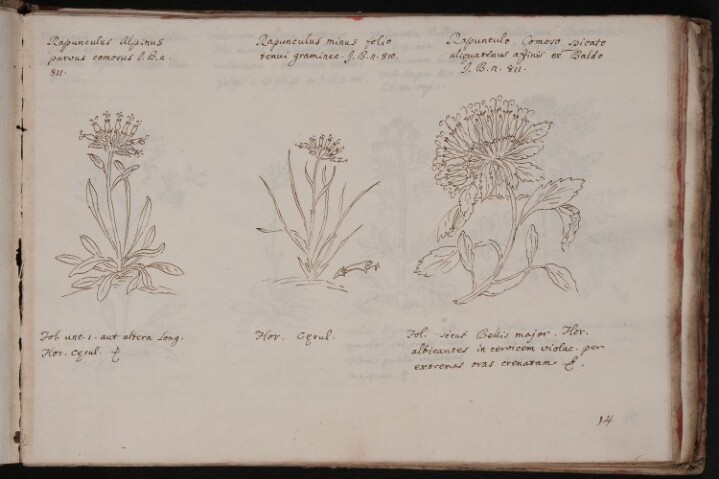 Rapunculus Alpinus
parvus comosus J. B. n.
811.
Rapunculus minus folio
tenui gramineo. J. B. n. 810.
Rapunculo Comoso spicato
aliquatenus affinis ex Baldo
J. B. n. 811.
Fol. unc. 1. aut altera long.
Flor. Cęrul.
Flor. Cęrul.
Fol. sicut Bellis major. Flor.
albicantes in cervicem violac. per
extremas oras crenatam
14